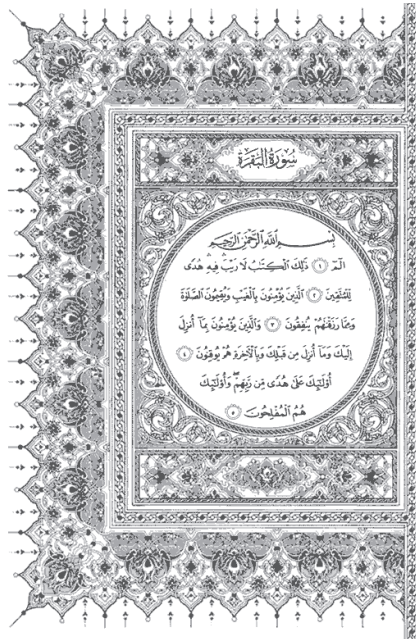 سُورَةُ البَقَرَةِ
بِسْمِ اللَّهِ الرَّحْمَٰنِ الرَّحِيمِ
الٓمٓ ١ ذَٰلِكَ الْكِتَٰبُ لَا رَيْبَ ۛ فِيهِ ۛ هُدًى
لِلْمُتَّقِينَ ٢ الَّذِينَ يُؤْمِنُونَ بِالْغَيْبِ وَيُقِيمُونَ الصَّلَوٰةَ
وَمِمَّا رَزَقْنَٰهُمْ يُنفِقُونَ ٣ وَالَّذِينَ يُؤْمِنُونَ بِمَآ أُنزِلَ
إِلَيْكَ وَمَآ أُنزِلَ مِن قَبْلِكَ وَبِالْأَخِرَةِ هُمْ يُوقِنُونَ ٤
أُوْلَٰٓئِكَ عَلَىٰ هُدًى مِّن رَّبِّهِمْ ۖ وَأُوْلَٰٓئِكَ
هُمُ الْمُفْلِحُونَ ٥